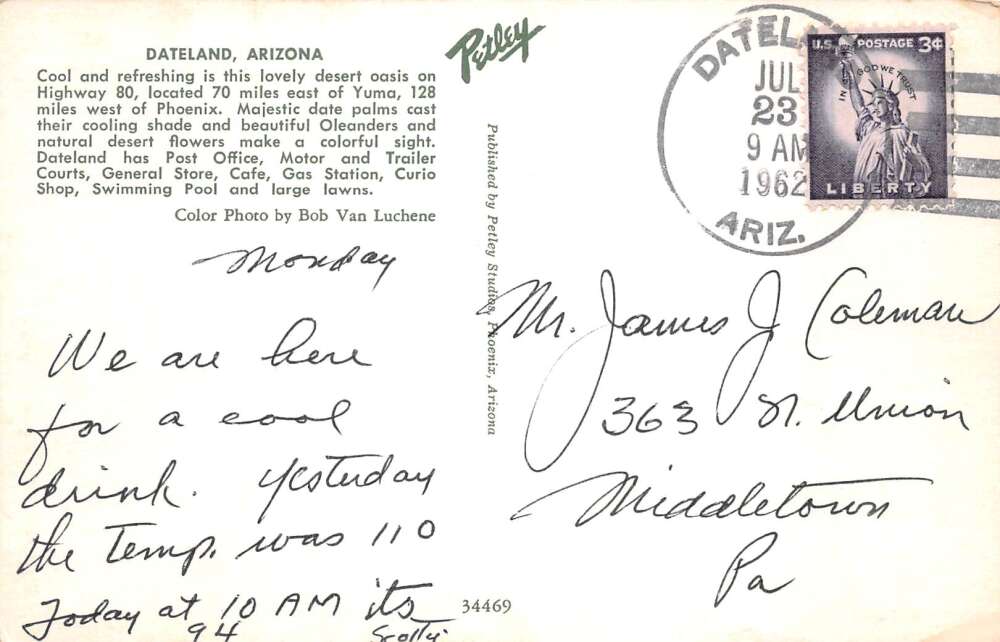 DATELAND, ARIZONA
Cool and refreshing is this lovely desert oasis on
Highway 80, located 70 miles east of Yuma, 128
miles west of Phoenix. Majestic date palms cast
their cooling shade and beautiful Oleanders and
natural desert flowers make a colorful sight.
Dateland has Post Office, Motor and Trailer
Courts, General Store, Cafe, Gas Station, Curio
Shop, Swimming Pool and large lawns.
Color Photo by Bob Van Luchene
Monday
We are here
for a cool
drink. Yesterday
the Temp. was 110
Today at 10 AM its
94
Scotty
Petley
Published by Petley Studios, Phoenix, Arizona
34469
JUL
23
9 AM
1962
ARIZ.
U.S. POSTAGE 3¢
IN GOD WE TRUST
LIBERTY
Mr. James J Coleman
363 N. Union
Middletown
Pa